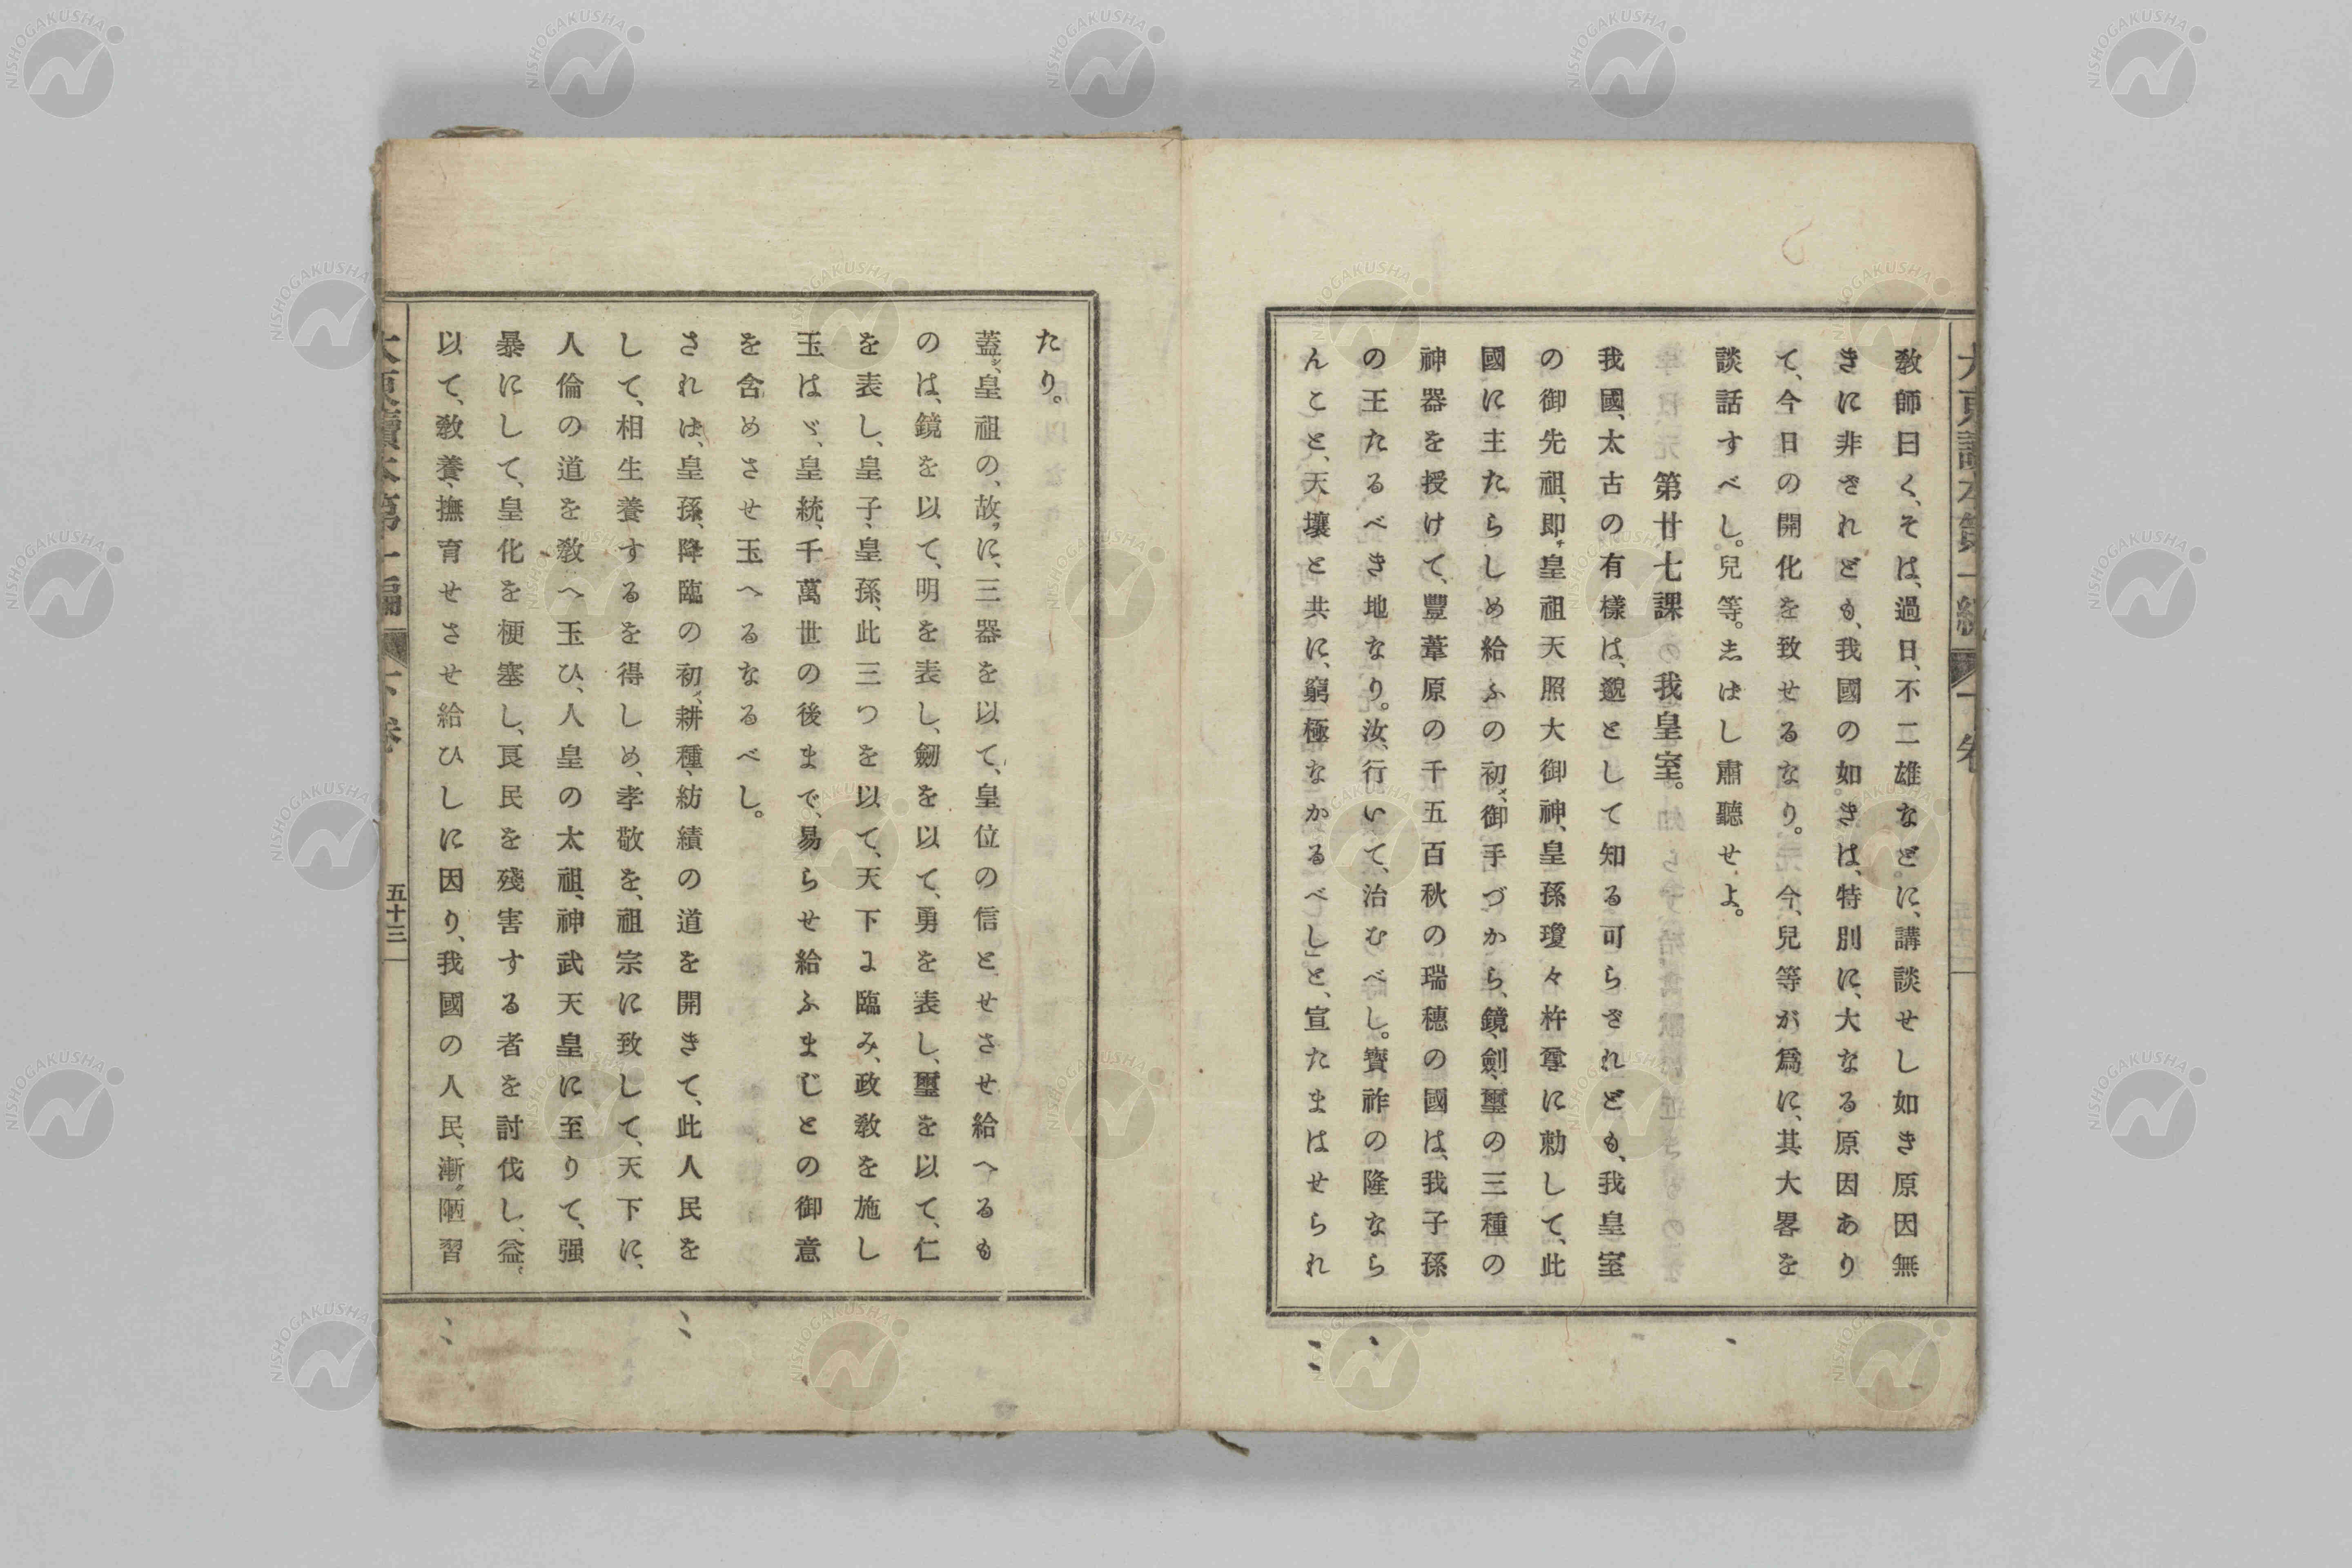 教師曰く、そは、過日、不二雄などに、講談せし如き原因無
きに非ざれども、我國の如きは、特別に、大なる原因あり
て、今日の開化を致せるなり。今、兒等が爲に、其大畧を
談話すべし。兒等。志はし肅聽せよ。
第廿七課 我皇室。
我國、太古の有樣は、邈として知る可らざれども、我皇室
の御先祖、即チ皇祖天照大御神、皇孫瓊々杵尊に勅して、此
國に主たらしめ給ふの初メ、御手づから、鏡、劍、璽の三種の
神器を授けて、豐葦原の千五百秋の瑞穗の國は、我子孫
の王たるべき地なり。汝、行いて、治むべし。寶祚の隆なら
んこと、天壤と共に、窮極なかるべし」と、宣たまはせられ
たり。
蓋シ、皇祖の、故ラに、三器を以て、皇位の信とせさせ給へるも
のは、鏡を以て、明を表し、劒を以て、勇を表し、璽を以て、仁
を表し、皇子、皇孫、此三つを以て、天下に臨み、政教を施し
玉はゞ、皇統、千萬世の後まで、易らせ給ふまじとの御意
を含めさせ玉へるなるべし。
されは、皇孫、降臨の初メ、耕種、紡績の道を開きて、此人民を
して、相生養するを得しめ、孝敬を、祖宗に致して、天下に、
人倫の道を教へ玉ひ、人皇の太祖、神武天皇に至りて、强
暴にして、皇化を梗塞し、良民を殘害する者を討伐し、益〻
以て、教養、撫育せさせ給ひしに因り、我國の人民、漸〻陋習
五十三
NISHOGAKUSHA